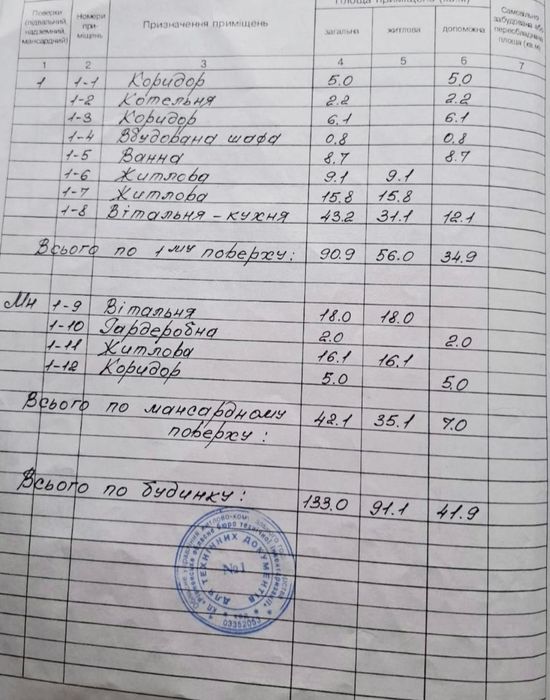 Площа приміщень (кв.м)
Поверхи (підвальний, надземний, мансардний) Номери при- міщень Призначення приміщень загальна житлова допоміжна Самовільно збудована або переобладнана площа (кв.м)
1 2 3 4 5 6 7
1 1-1 Коридор 5.0 5.0
1-2 Котельня 2.2 2.2
1-3 Коридор 6.1 6.1
1-4 Вбудована шафа 0.8 0.8
1-5 Ванна 8.7 8.7
1-6 Житлова 9.1 9.1
1-7 Житлова 15.8 15.8
1-8 Вітальня-кухня 43.2 31.1 12.1
Всього по 1му поверху: 90.9 56.0 34.9
Мн 1-9 Вітальня 18.0 18.0
1-10 Гардеробна 2.0 2.0
1-11 Житлова 16.1 16.1
1-12 Коридор 5.0 5.0
Всього по мансардному
поверху: 42.1 35.1 7.0
Всього по будинку: 133.0 91.1 41.9
ДЛЯ ТЕХНІЧНИХ ДОКУМЕНТІВ
№1
03352053